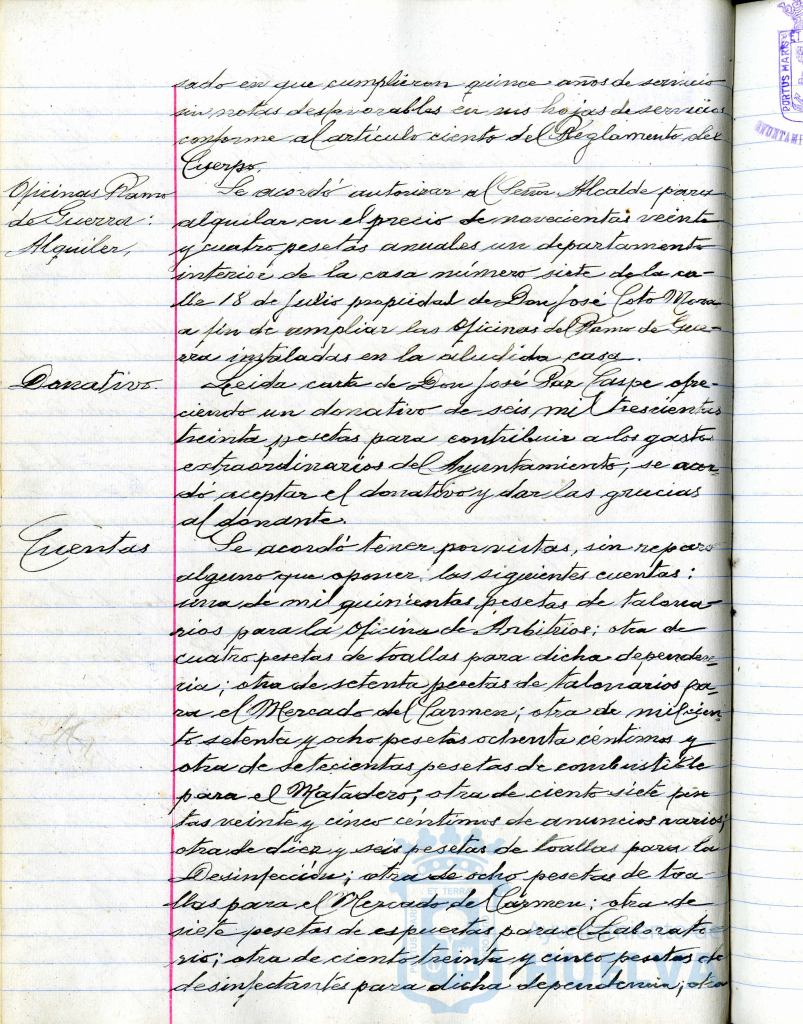 sado en que cumplieron quince años de servicio
sin notas desfavorables en sus hojas de servicios
conforme al artículo ciento del Reglamento del
Cuerpo.
Oficinas Ramo
de Guerra:
Alquiler,
Se acordó autorizar al Señor Alcalde para
alquilar en el precio de novecientas veinte
y cuatro pesetas anuales un departamento
interior de la casa número siete de la ca-
lle 18 de Julio propiedad de Don José Coto Mora
a fin de ampliar las Oficinas del Ramo de Gue-
rra instaladas en la aludida casa.
Donativo
Leida carta de Don José Paz Gaspe ofre-
ciendo un donativo de seis mil trescientas
treinta pesetas para contribuir a los gastos
extraordinarios del Ayuntamiento, se acor-
dó aceptar el donativo y dar las gracias
al donante.
Cuentas
Se acordó tener por vistas, sin reparo
alguno que oponer, las siguientes cuentas:
una de mil quinientas pesetas de talona-
rios para la Oficina de Arbitrios; otra de
cuatro pesetas de toallas para dicha dependen-
cia; otra de setenta pesetas de talonarios pa-
ra el Mercado del Carmen; otra de mil cien-
to setenta y ocho pesetas ochenta céntimos y
otra de setecientas pesetas de combustible
para el Matadero; otra de ciento siete pese-
tas veinte y cinco céntimos de anuncios varios;
otra de diez y seis pesetas de toallas para la
Desinfección; otra de ocho pesetas de toa-
llas para el Mercado del Carmen; otra de
siete pesetas de espuertas para el Laborato-
rio; otra de ciento treinta y cinco pesetas de
desinfectantes para dicha dependencia; otra
Ayuntamiento de
HUELVA
PORTUS MARIS
ET TERRAE
PORTUS MARIS